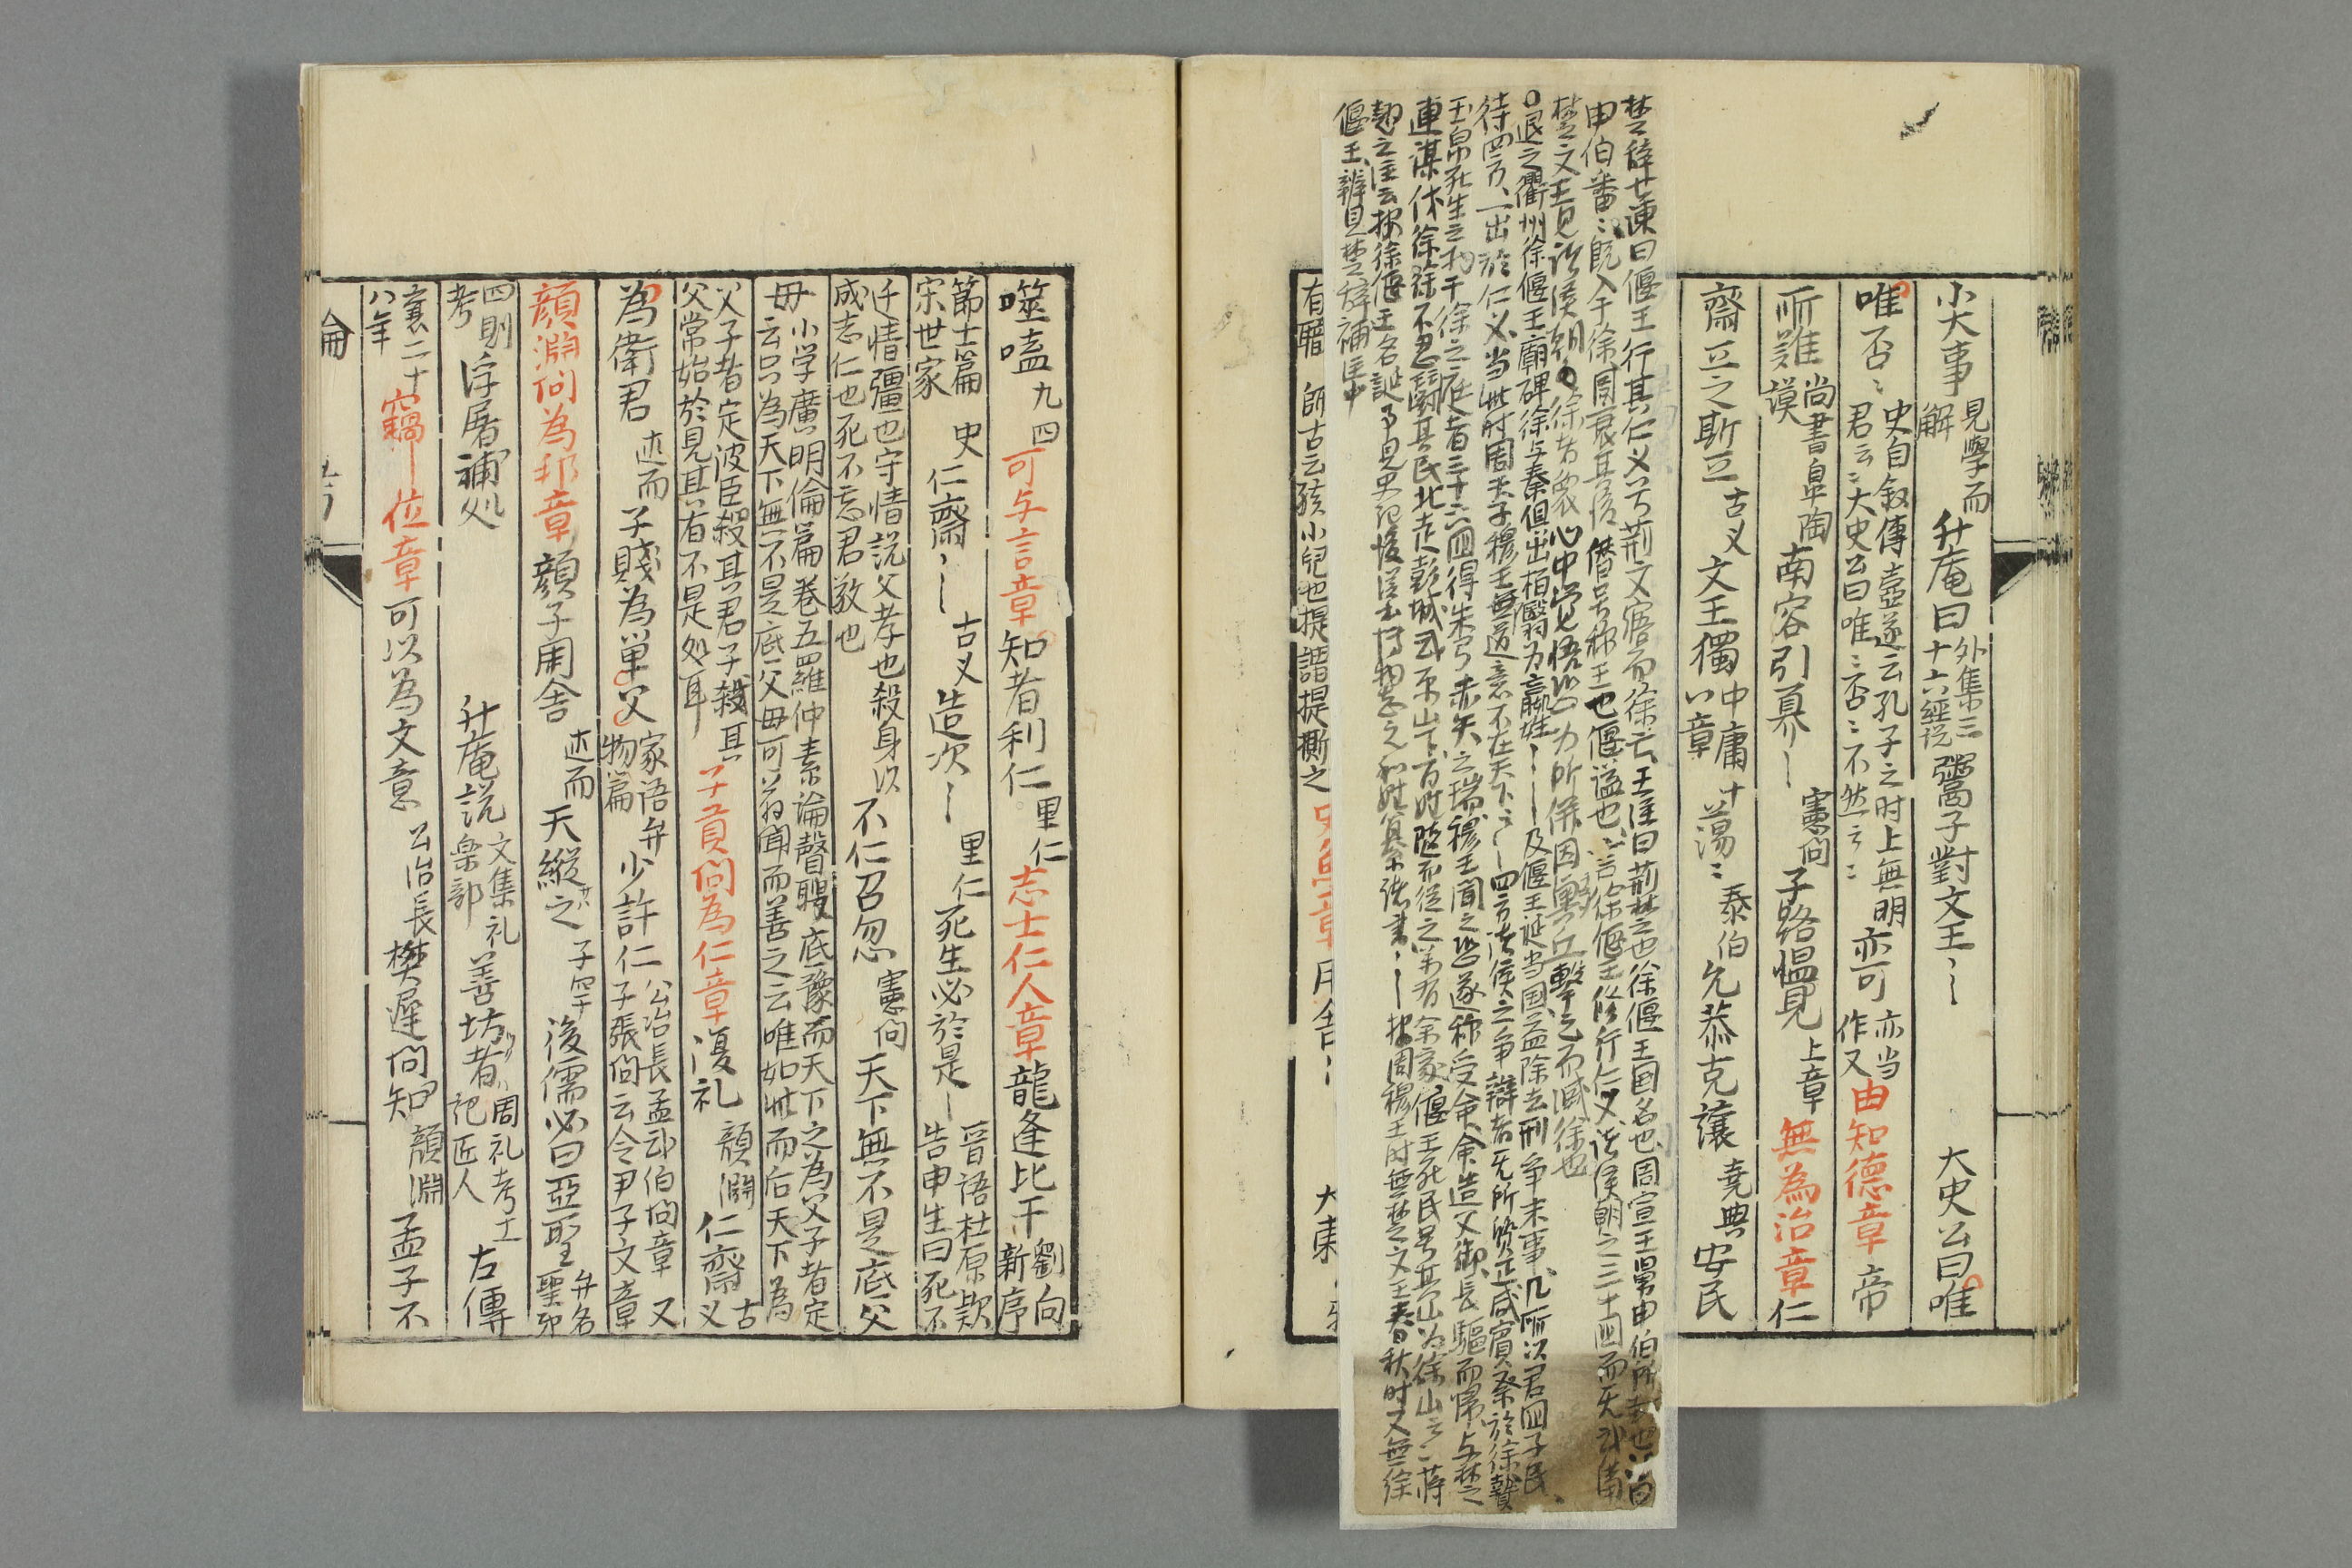 小大事 見學而解 升庵曰 外集三十六經説 鬻子對文王〻〻 大史公曰唯
唯否〻 史自叙傳壺遂云孔子之时上無明君云〻大史公曰唯〻否〻不然云〻 亦可 亦当作又 由知德章 帝
所難 尚書皐陶謨 南容引羿〻 憲問 子路慍見 上章 無為治章 仁
齋立之斯立 古义 文王獨 中庸十八章 蕩〻 泰伯 允恭克讓 堯典 安民
楚辞七諫曰偃王行其仁义兮荆文寤而徐亡王注曰荆楚也徐偃王国名也周宣王舅申伯所封也
申伯番〻既入于徐周衰其後僭号称王也偃谥也言徐偃王修行仁义诸侯朝之三十国而无武備
楚文王見诸侯朝徐者衆心中覚悟恐为所併因興兵撃之而滅徐也
○退之衢州徐偃王廟碑徐与秦俱出栢翳为嬴姓〻〻及偃王诞当国益除去刑争末事凡所以君国子民
待四方一出於仁义当此时周天子穆王無道意不在天下〻四方诸侯之争辯者无所质正咸賓祭於徐贄
玉帛死生之物于徐之庭者三十六国得朱弓赤矢之瑞穆王聞之恐遂称受命命造父御長驅而帰与楚
連謀伐徐徐不忍鬪其民北走彭城武原山下百姓随而從之萬有余家偃王死民号其山为徐山云〻蒋
之注云按徐偃王名誕予見史記後漢書博物志元和姓纂等諸書〻按周穆王时無楚文王春秋时又無徐
偃王辨見楚辞補注中
有瞻 師古云孩小兒也提謂提撕之 用舎〻 大東
噬嗑 九四 可与言章 知者利仁 里仁 志士仁人章 龍逢比干 劉向新序
節士篇宋世家 史 仁齋〻 古义 造次〻 里仁 死生必於是〻 晋語杜原款告申生曰死不
迁情彊也守情説父孝也殺身以成志仁也死不忘君敬也 不仁召忽 憲問 天下無不是底父
毋 小学廣明倫篇卷五羅仲素論瞽瞍底豫而天下之為父子者定云只為天下無不是底父毋可翁聞而善之云唯如此而后天下為
父子者定波臣殺其君子殺其父常始於見其有不是処耳 子貢問為仁章 復礼 顔淵 仁齋 古义
為衛君 述而 子賤為單父 家語弁物篇 少許仁 公冶長孟武伯問章又子張問云令尹子文章
顔淵問為邦章 顔子用舎 述而 天縦之 子罕 後儒必曰亞聖 弁名聖部
四則考 浮屠補処 升庵説 文集礼楽部 善坊者 周礼考工記匠人 左傳
襄二十八年 竊位章 可以為文章 公冶長 樊遲問知 顔淵 孟子不